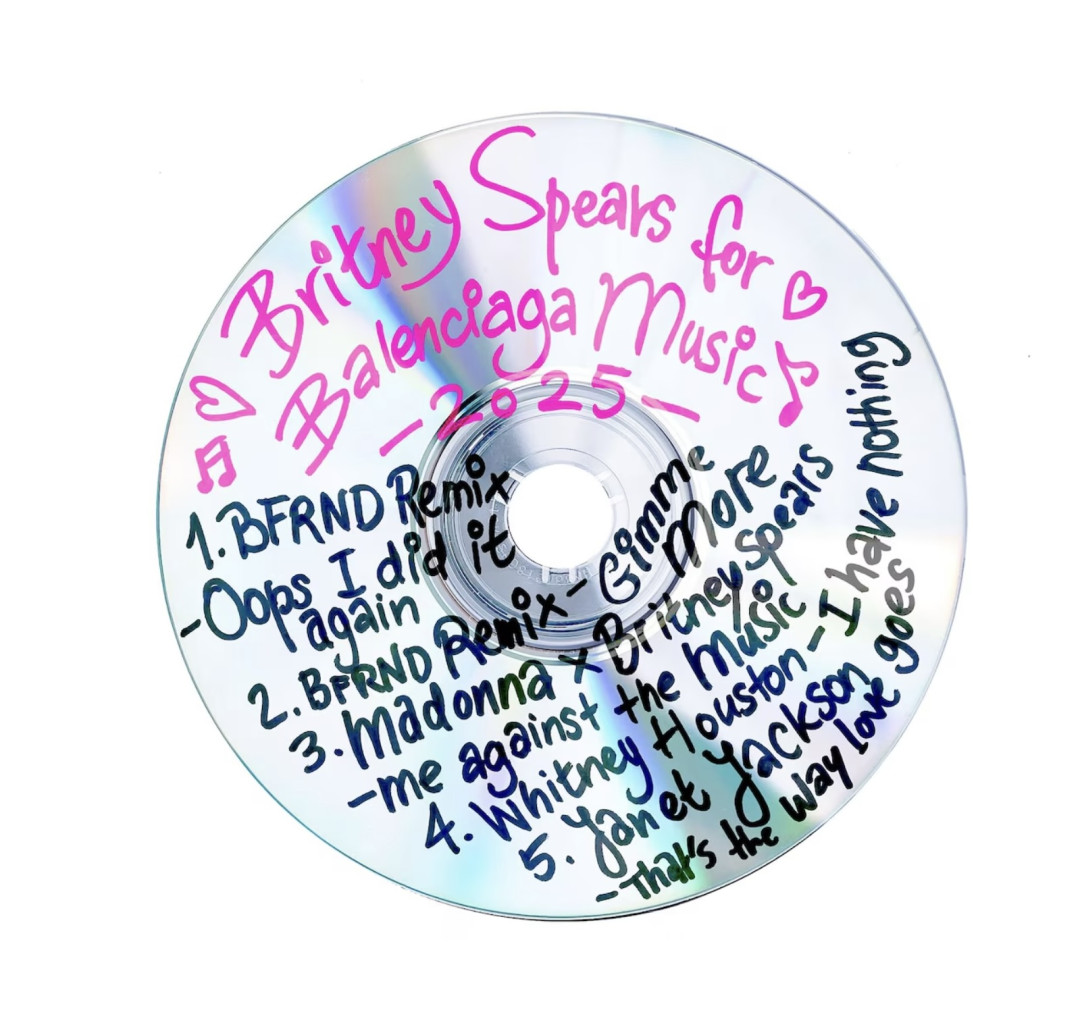 Britney Spears for
Balenciaga Music
-2025-
1. BFRND Remix
-Oops I did it
again
2. BFRND Remix - Gimme
More
3. Madonna x Britney Spears
-me against the Music
4. Whitney Houston - I have nothing
5. Janet Jackson
-That's the way love goes